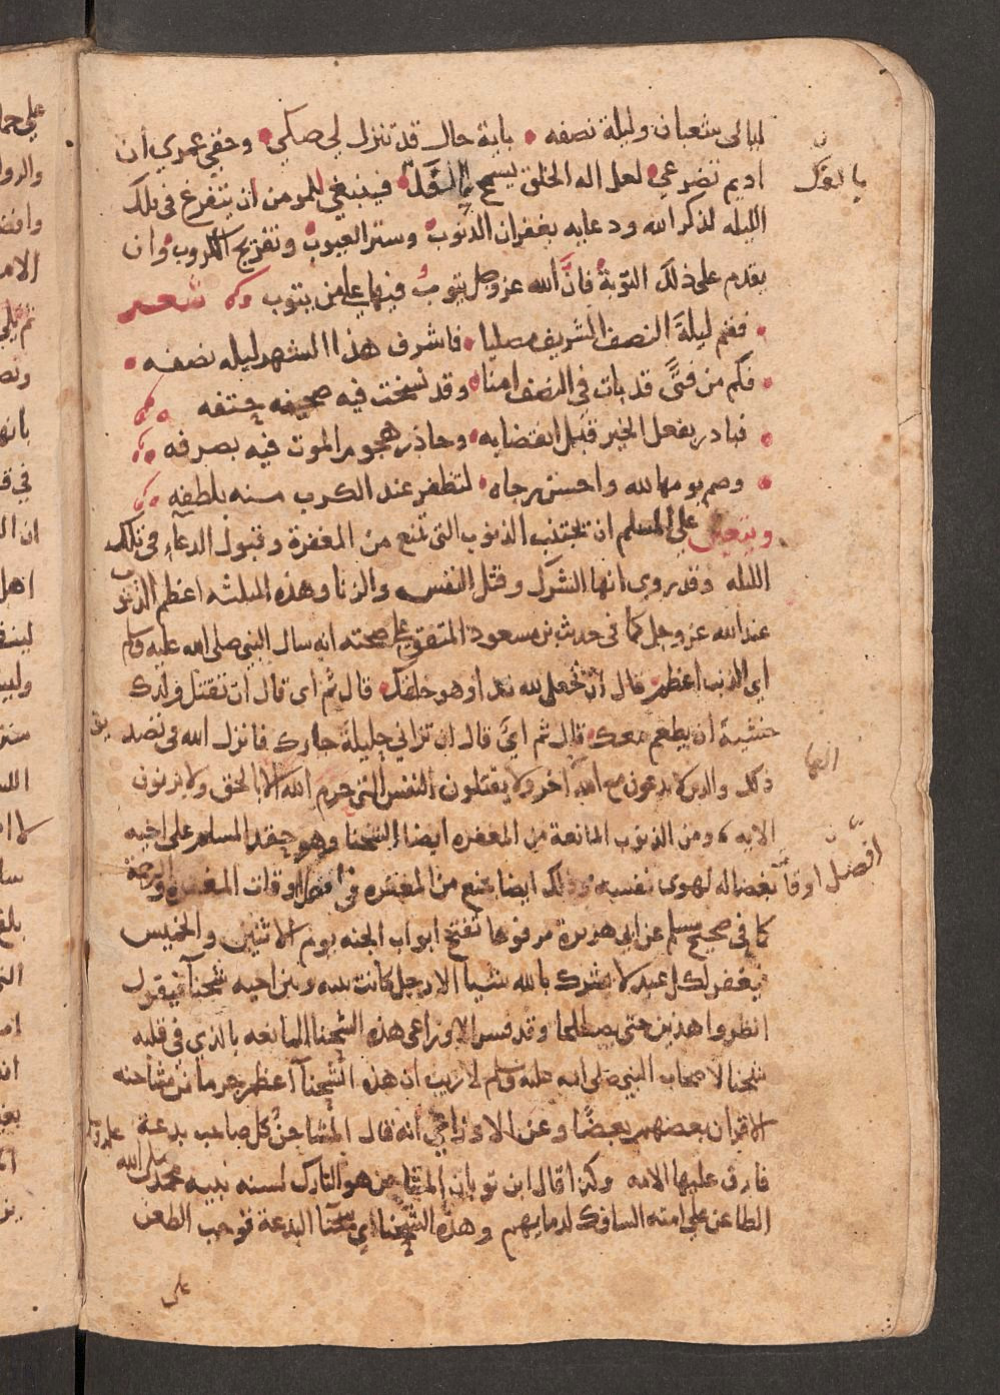 ليالى شعبان وليلة نصفه • باية حال قد تنزل لي صكي • وحقي عمري أن
اديم تضرعي • لعل اله الخلق يسمح بالفك • فينبغي للمومن ان يتفرغ في تلك
بالفك
الليله لذكر الله ودعايه بغفران الذنوب وستر العيوب وتفريج الكروب وان
يقدم على ذلك التوبة فانَّ الله عز وجل يتوب فيها على من يتوب شعر
• فقم ليلةَ النصف الشريف مصليا • فاشرف هذا الشهر ليله نصفه •
• فكم من فتًى قد بات في النصف امنا • وقد نسخت فيه صحيفه حتفه
• فبادر بفعل الخير قبل انقضايه • وحاذر هجوم الموت فيه بصرفه
• وصم يومها لله واحسن رجاه • لتظفر عند الكرب منه بلطفه
ويتعين على المسلم ان يجتنب الذنوب التى تمنع من المغفرة وقبول الدعاء في تلك
الليله وقد روى انها الشرك وقتل النفس والزنا وهذه الثلثه اعظم الذنوب
عند الله عز وجل كما في حديث بن مسعود المتفق على صحته انه سال النبي صلى الله عليه وسلم
اي الذنب اعظم • قال ان تجعل لله ندا وهو خلقك • قال ثم اى قال ان تقتل ولدك
خشيةَ ان يطعم معك • قال ثم ايّ قال ان تزاني حليلة جارك فانزل الله في تصديق
ذلك والذين لا يدعون مع الله اخر ولا يقتلون النفس التى حرم الله الا بالحق ولا يزنون
الها
الايه ومن الذنوب المانعة من المغفره ايضا الشحنا وهو حقد المسلم على اخيه
بغضا له لهوى نفسه وذلك ايضا يمنع من المغفره في افضل اوقات المغفره والرحمة
افضل اوقات
كما في صحيح مسلم عن ابي هريرة مرفوعا تفتح ابواب الجنه يوم الاثنين والخميس
فيغفر لكل عبد لا يشرك بالله شيا الا رجل كانت بينه وبين اخيه شحنا فيقول
انظروا هذين حتى يصطلحا وقد فسر الاوزاعي هذه الشحنا المانعه بالذي في قلبه
شحنا لاصحاب النبي صلى الله عليه وسلم لا ريب ان هذه الشحنآ اعظم جرما من مشاحنه
الاقران بعضهم بعضًا وعن الاوزاعي انه قال المشاحنُ كل صاحب بدعة
فارق عليها الامه وكذا قال ابن ثوبان المشاحن هو التارك لسنه نبيه محمد صلى الله عليه وسلم
الطاعن على امته السافك لدمايهم وهذه الشحنا اي شحنا البدعة توجب الطعن
على